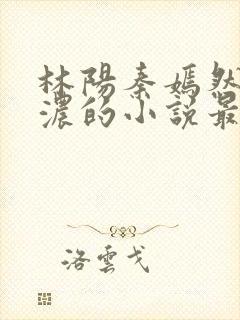 林陽秦嫣然
濃的小說最
洛雲戈